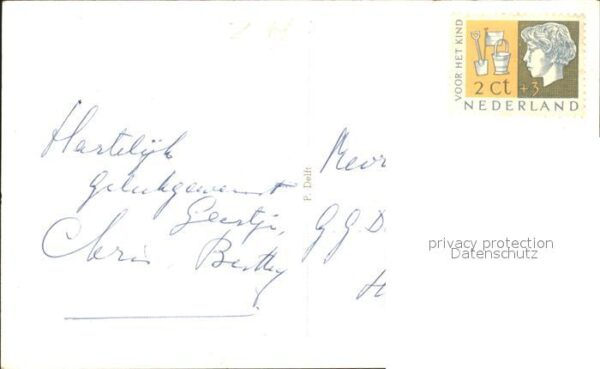 VOOR HET KIND
2 ct +3
NEDERLAND
Hartelijk
gelukgewenst
Geertje,
Chris
P. Delft
G.G.D.
privacy protection
Datenschutz